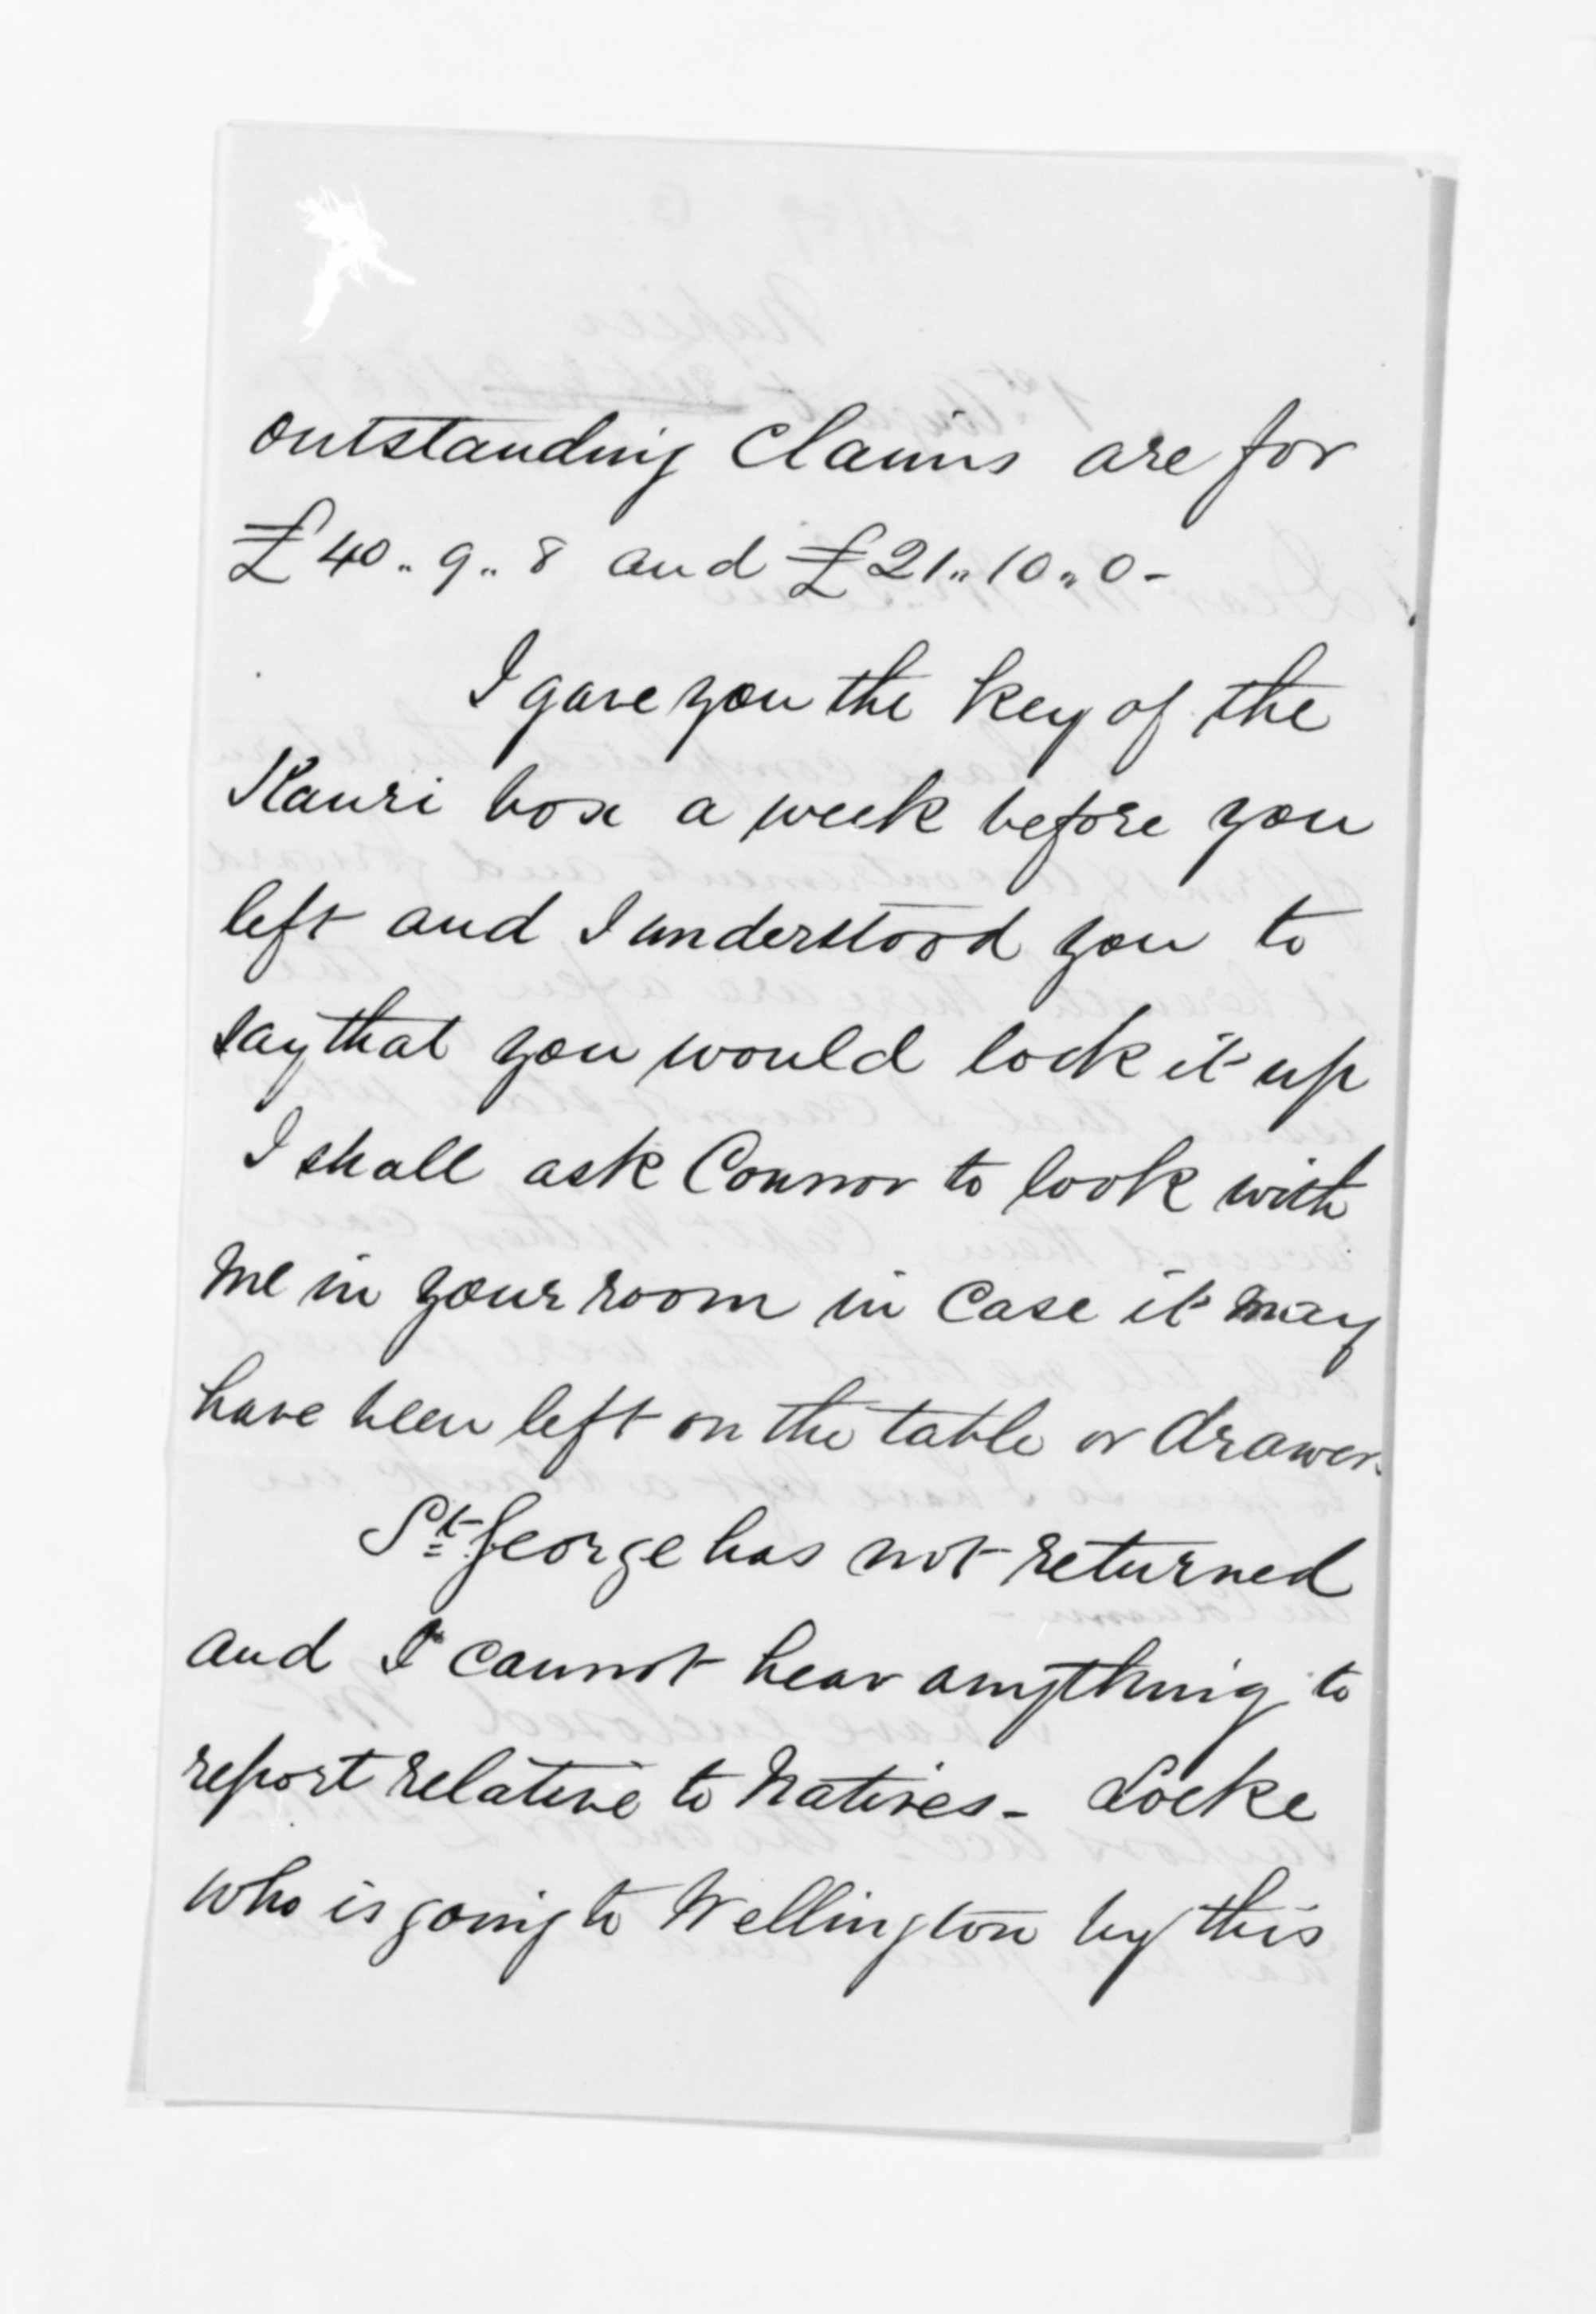 outstanding Claims are for
£40,, 9,, 8 and £21,, 10,, 0 -
I gave you the key of the
Kauri box a week before you
left and I understood you to
say that you would lock it up
I shall ask Connor to look with
me in your room in case it may
have been left on the table or drawer.
St. George has not returned
and I cannot hear anything to
report relative to Natives - Locke
who is going to Wellington by this